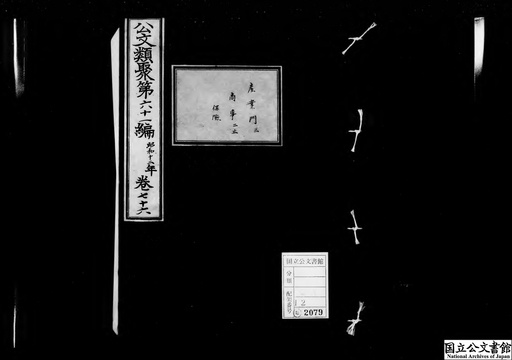 公文類聚第六十一編昭和十二年巻七十六
産業門三
商事二止
保険
国立公文書館
分類
配架番号
2
2079
国立公文書館
National Archives of Japan